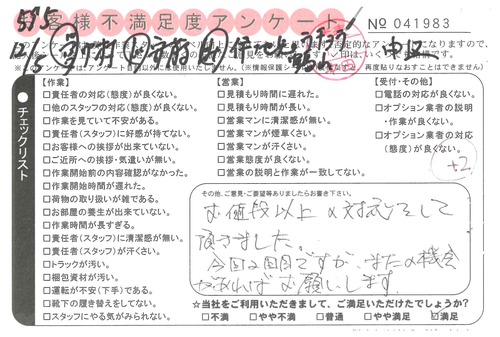 お客様不満足度アンケート
№ 041983
【作業】
□責任者の対応(態度)が良くない。
□他のスタッフの対応(態度)が良くない。
□作業を見ていて不安がある。
□責任者(スタッフ)に好感が持てない。
□お客様への挨拶が出来ていない。
□ご近所への挨拶・気遣いが無い。
□作業開始前の内容確認がなかった。
□作業開始時間が遅れた。
□荷物の取り扱いが雑である。
□お部屋の養生が出来ていない。
□作業時間が長すぎる。
□責任者(スタッフ)に清潔感が無い。
□責任者(スタッフ)が汗くさい。
□トラックが汚い。
□梱包資材が汚い。
□運転が安全(下手)である。
□靴下の履き替えをしてない。
□スタッフにやる気がみられない。
【営業】
□見積もり時間に遅れた。
□見積もり時間が長い。
□営業マンに清潔感が無い。
□営業マンが煙草くさい。
□営業マンが汗くさい。
□営業態度が良くない。
□営業の説明と作業が一致してない。
【受付・その他】
□電話の対応が良くない。
□オプション業者の説明
・作業が良くない。
□オプション業者の対応
(態度)が良くない。
+2
チェックリスト
その他、ご意見・ご要望等ありましたらお書き下さい。
お値段以上の対応をして
頂きました。
今回2回目ですが、またの機会
があればお願いします。
☆当社をご利用いただきまして、ご満足いただけたでしょうか?
□不満 □やや不満 □普通 □やや満足 ☑満足